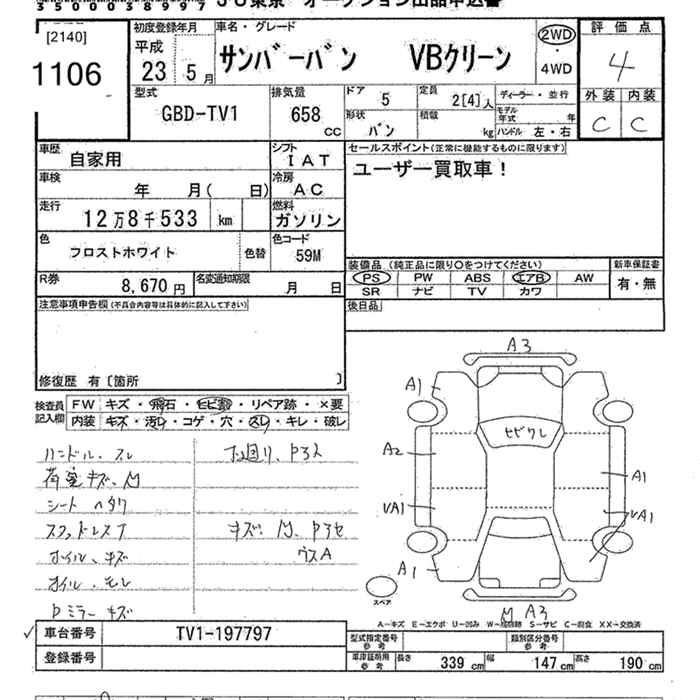 35000389 97 JU東京 オークション出品申込書
[2140]
1106
初度登録年月
平成
23 5月
車名・グレード
サンバーバン VBクリーン
2WD
・
4WD
評価点
4
外装 内装
C C
型式
GBD-TV1
排気量
658
CC
ドア
5
定員
2[4]人
ディーラー・並行
モデル年式 年
形状
バン
積載
kg
ハンドル 左・右
車歴
自家用
シフト
IAT
車検
年 月( 日)
冷房
AC
走行
12万8千533 km
燃料
ガソリン
色
フロストホワイト
色替
色コード
59M
R券
8,670円
名変通知期限
月 日
セールスポイント(正常に機能するものに限ります)
ユーザー買取車!
装備品(純正品に限り○をつけてください)
PS PW ABS エアB AW
SR ナビ TV カワ
新車保証書
有・無
後日品
注意事項申告欄(不具合内容等は具体的に記入して下さい)
修復歴 有〔箇所 〕
検査員
記入欄
FW キズ・飛石・ヒビ割・リペア跡・×要
内装 キズ・汚レ・コゲ・穴・スレ・キレ・破レ
ハンドル、スレ
荷室キズ、M
シート ヘタリ
オイル、モレ
Dミラーキズ
下廻り、Pサス
キズ、M、Pアセ
ウスA
A3
A1
A2
VA1
A1
ヒビワレ
A1
VA1
スペア
M A3
A-キズ E-エクボ U-凹み W-補修跡 S-サビ C-腐食 XX-交換済
車台番号
TV1-197797
登録番号
型式指定番号
参考
類別区分番号
参考
車庫証明用
参考
長さ 339cm 幅 147cm 高さ 190cm